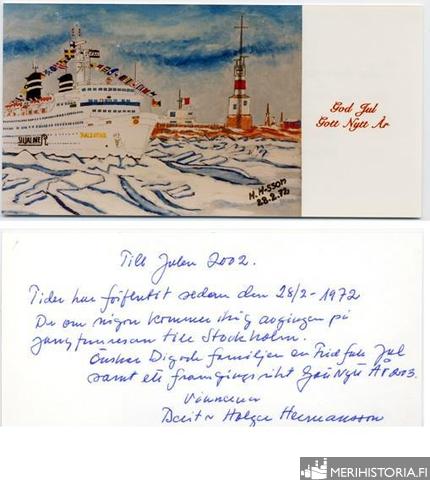 God Jul
Gott Nytt År
SILJA LINE
H. H-sson
28.2.72
Till Julen 2002.
Tiden har förflutit sedan den 28/2-1972
Du om någon kommer ihåg avgången på
jungfruresan till Stockholm.
Önskar Dig och familjen en Fridfull Jul
samt ett framgångsrikt Gott Nytt År 2003.
Vännerna
Holger Hermansson
MERIHISTORIA.FI